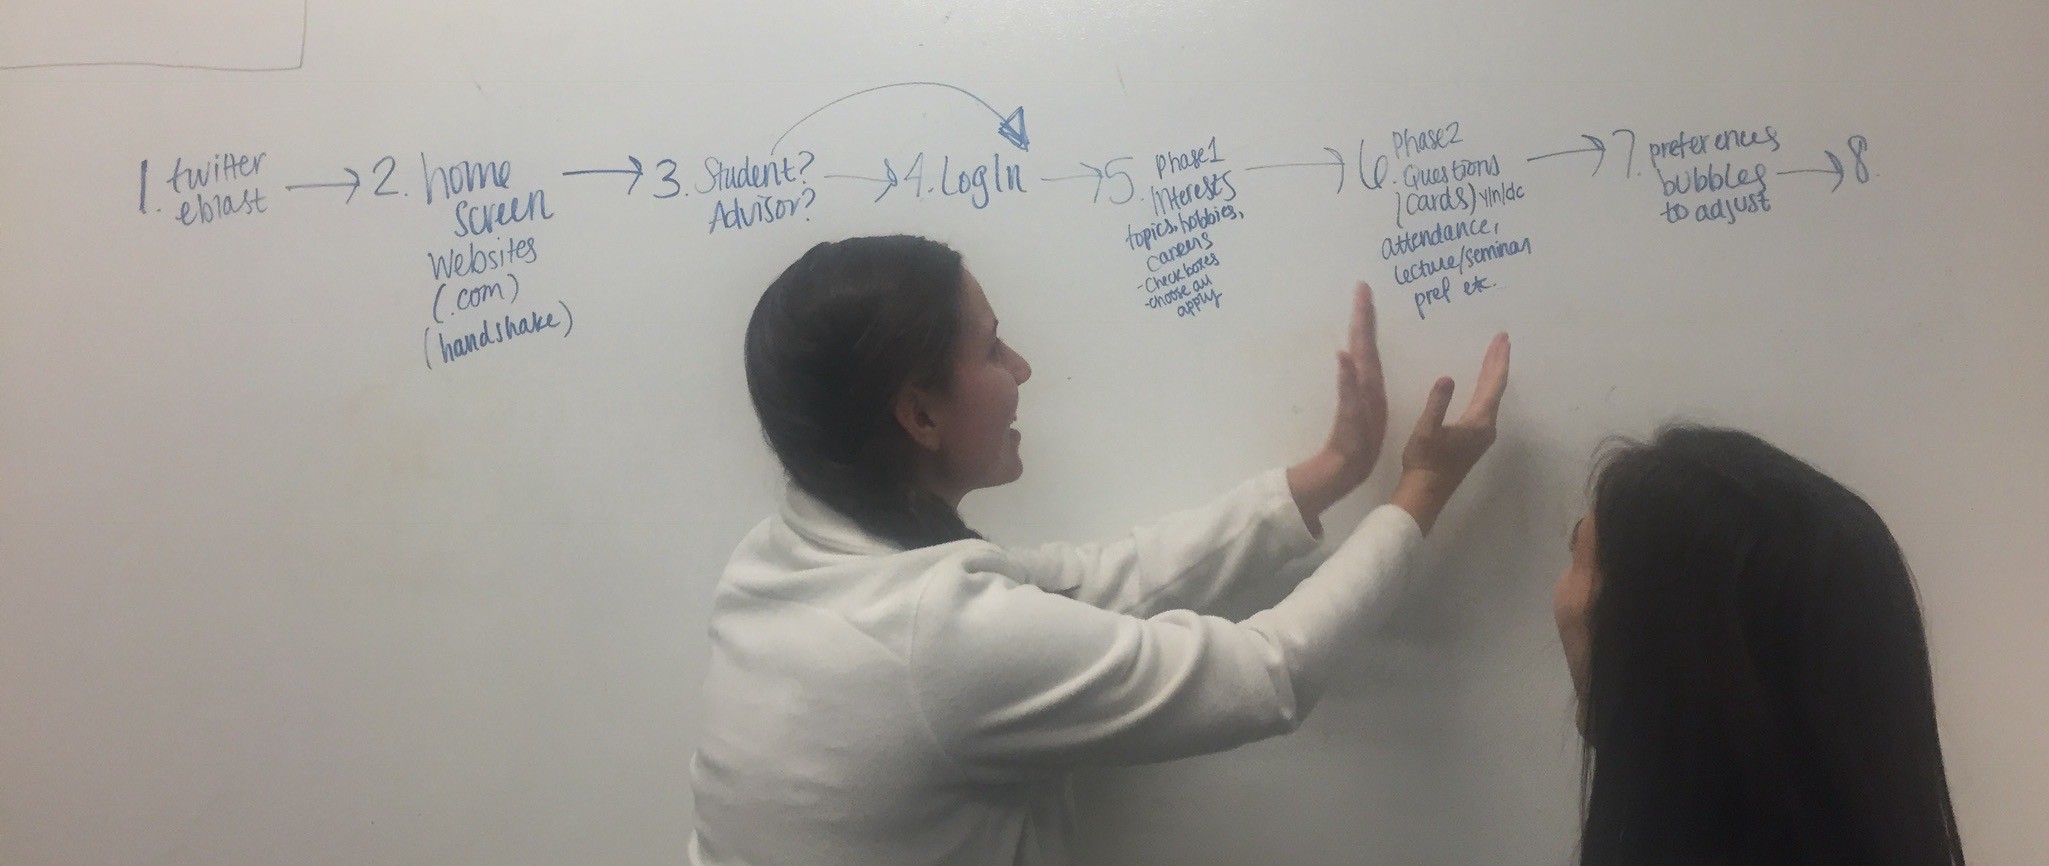 1. twitter
eblast
2. home
screen
websites
(.com)
(handshake)
3. Student?
Advisor?
4. LogIn
5. phase1
interests
topics, hobbies,
careers
-checkboxes
-choose all
apply
6. Phase2
Questions
(cards) y/n/dc
attendance,
lecture/seminar
pref etc.
7. preferences
bubbles
to adjust
8.